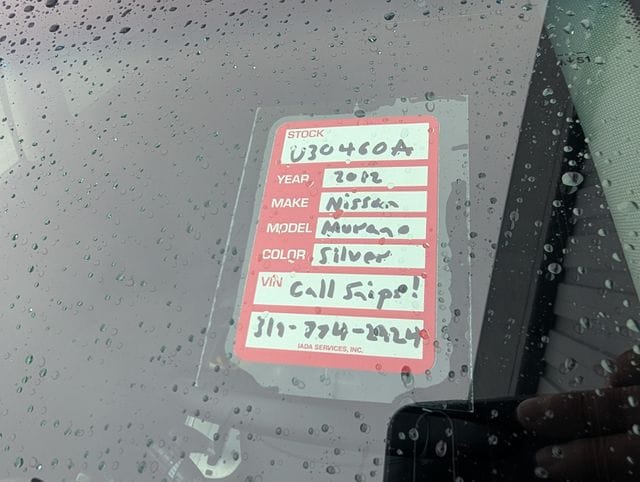 STOCK
U30460A
YEAR 2012
MAKE Nissan
MODEL Murano
COLOR Silver
VIN Call Snips!
317-774-2424
IADA SERVICES, INC.